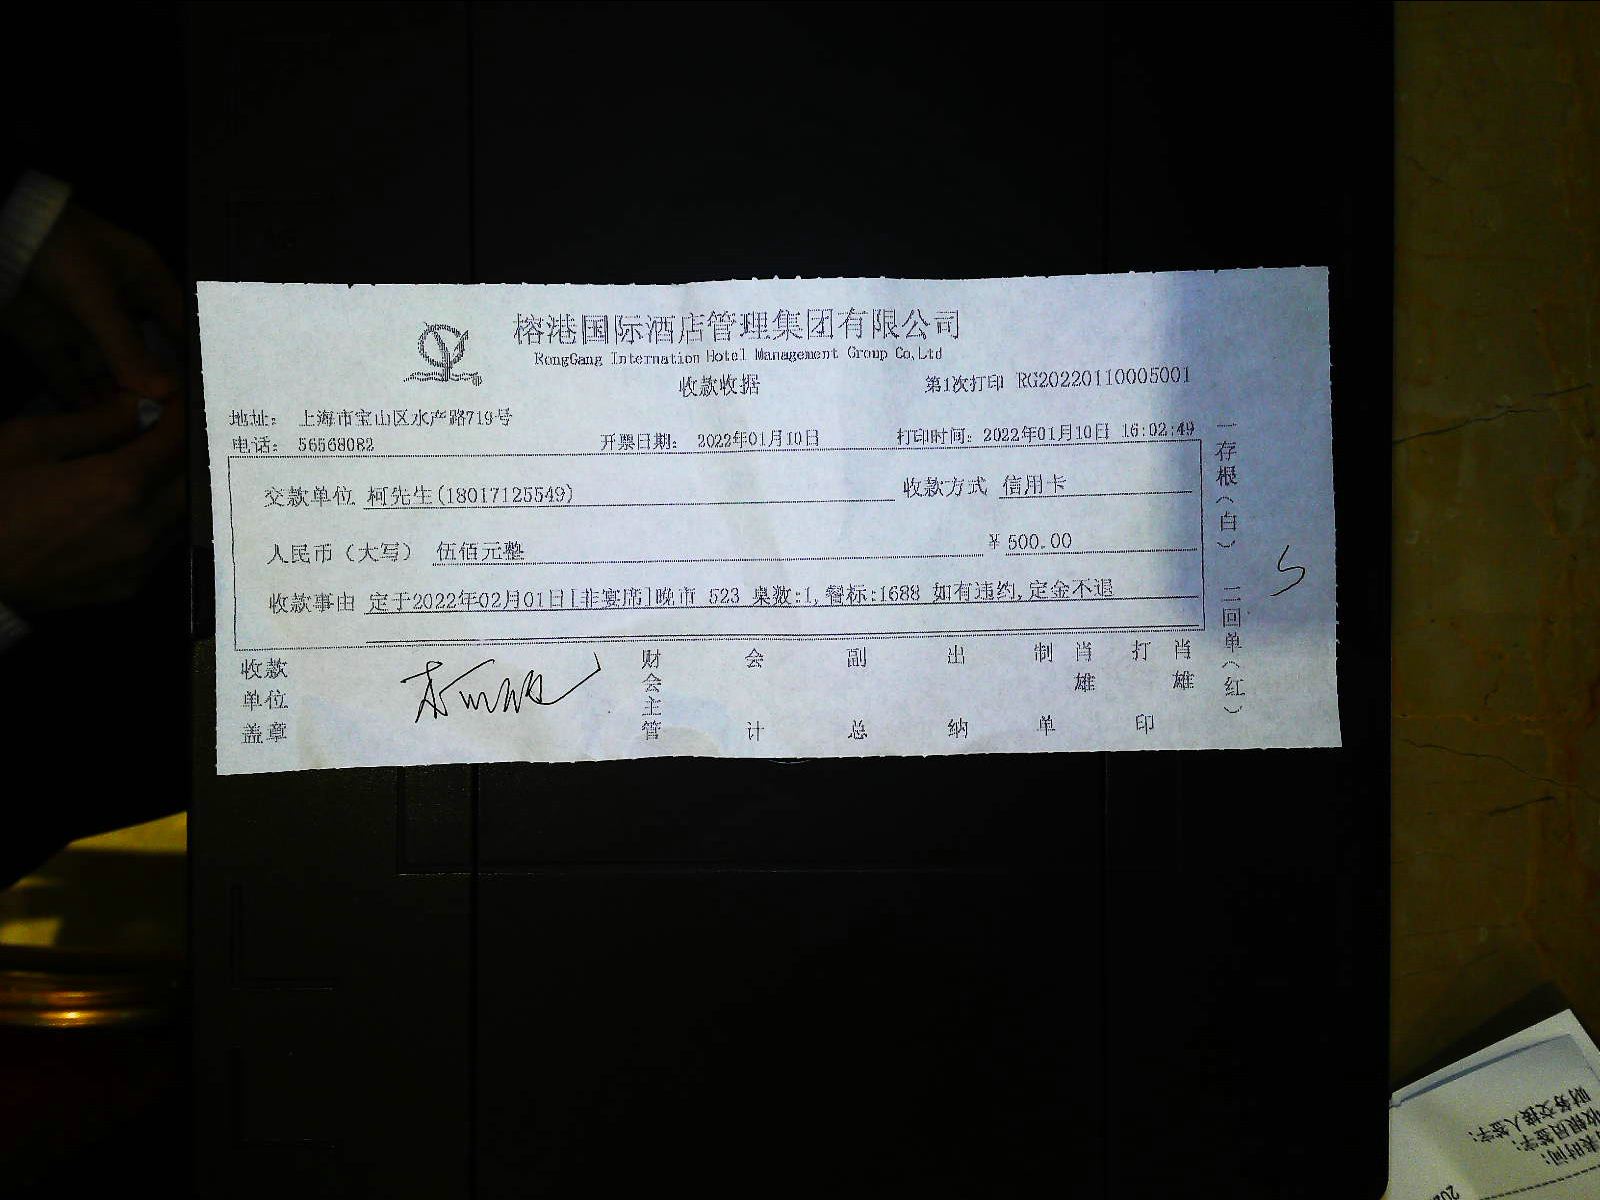 榕港国际酒店管理集团有限公司
RongGang Internation Hotel Management Group Co,Ltd
收款收据
第1次打印 RG20220110005001
地址: 上海市宝山区水产路719号
电话: 56568082 开票日期: 2022年01月10日 打印时间: 2022年01月10日 16:02:49
交款单位 柯先生(18017125549) 收款方式 信用卡
人民币(大写) 伍佰元整 ¥500.00
收款事由 定于2022年02月01日[非宴席]晚市 523 桌数:1,餐标:1688 如有违约,定金不退
收款单位盖章
财会主管
会计
副总
出纳
制单
肖雄
打印
肖雄
一存根(白) 二回单(红)
5
财务交接人签字: